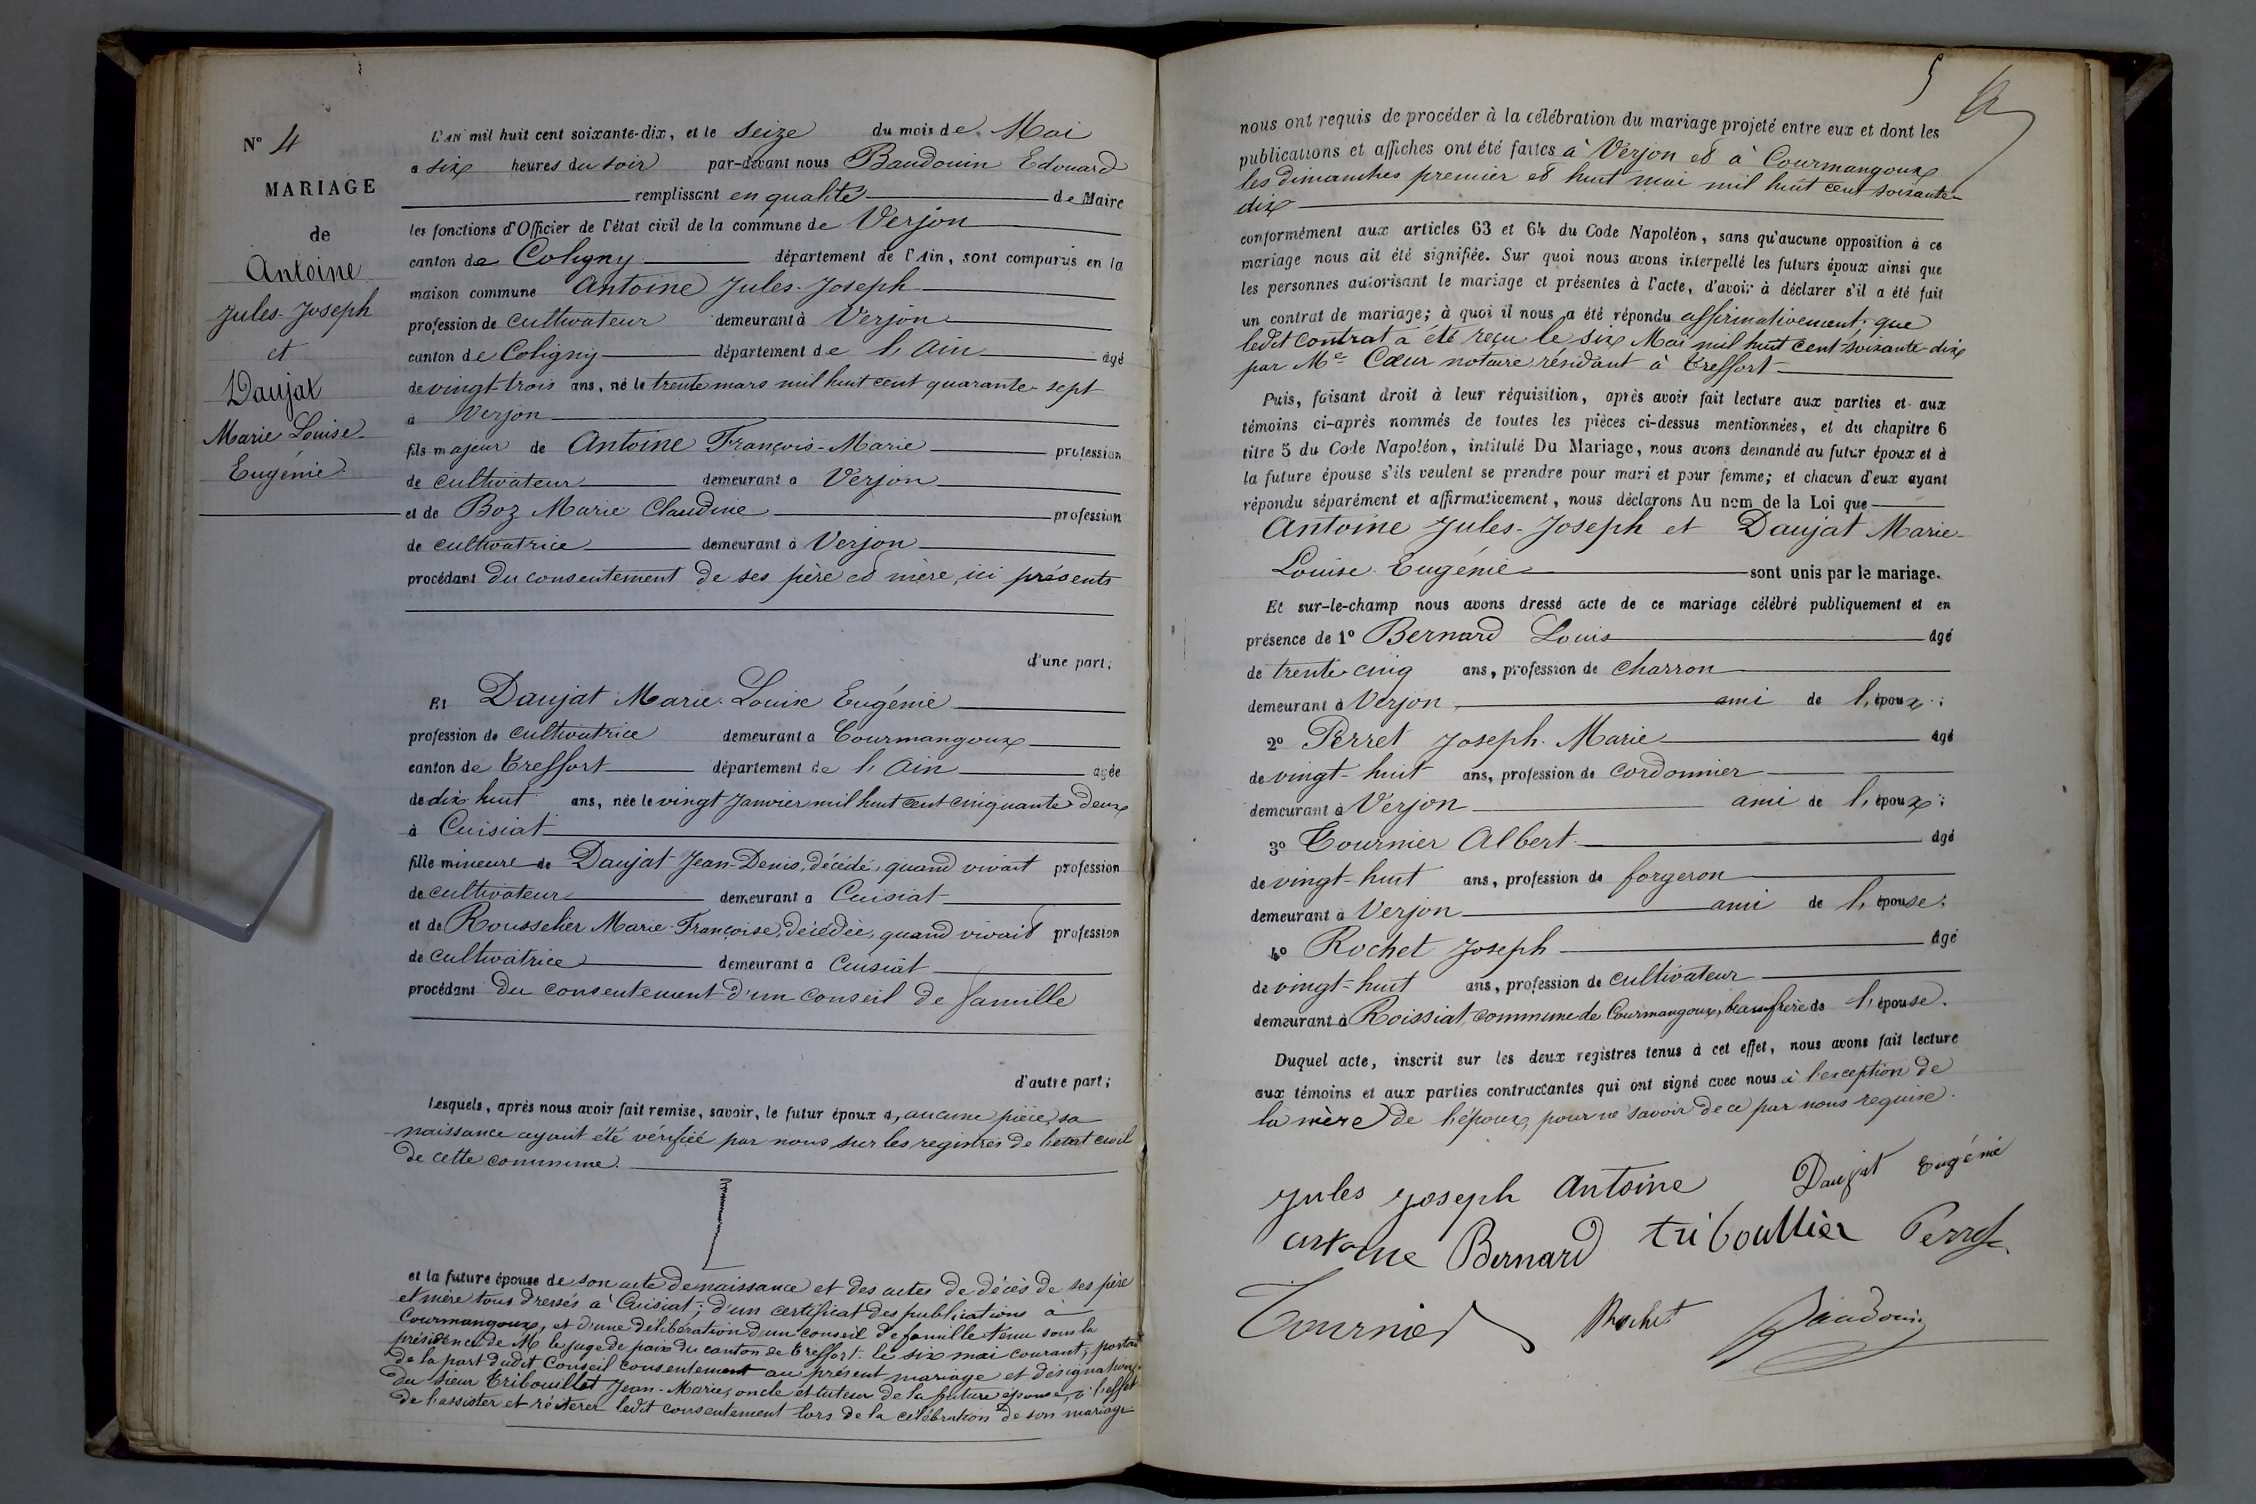 N° 4
MARIAGE
de
Antoine
Jules-Joseph
et
Daujat
Marie Louise
Eugénie
L'AN mil huit cent soixante-dix, et le seize du mois de Mai
a six heures du soir par-devant nous Baudouin Edouard
remplissant en qualité de Maire
les fonctions d'Officier de l'état civil de la commune de Verjon
canton de Coligny département de l'Ain, sont comparus en la
maison commune Antoine Jules-Joseph
profession de cultivateur demeurant à Verjon
canton de Coligny département de l'Ain âgé
de vingt-trois ans, né le trente mars mil huit cent quarante-sept
à Verjon
fils majeur de Antoine François-Marie profession
de cultivateur demeurant a Verjon
et de Boz Marie Claudine profession
de cultivatrice demeurant à Verjon
procédant du consentement de ses père et mère, ici présents
d'une part;
Et Daujat Marie-Louise Eugénie
profession de cultivatrice demeurant a Courmangoux
canton de Treffort département de l'Ain agée
de dix huit ans, née le vingt Janvier mil huit cent cinquante-deux
à Cuisiat
fille mineure de Daujat Jean-Denis, décédé, quand vivait profession
de cultivateur demeurant a Cuisiat
et de Rousselier Marie-Françoise, décédée, quand vivait profession
de cultivatrice demeurant a Cuisiat
procédant du consentement d'un conseil de famille
d'autre part;
Lesquels, après nous avoir fait remise, savoir, le futur époux d'aucune pièce, sa
naissance ayant été vérifiée par nous sur les registres de l'état civil
de cette commune.
et la future épouse de son acte de naissance et des actes de décès de ses père
et mère tous dressés à Cuisiat; d'un certificat des publications à
Courmangoux, et d'une délibération d'un conseil de famille tenu sous la
présidence de Mr le juge de paix du canton de Treffort le six mai courant, portant
de la part dudit Conseil consentement au présent mariage et désignation
du sieur Tribouillet Jean-Marie, oncle et tuteur de la future épouse, à l'effet
de l'assister et réitérer ledit consentement lors de la célébration de son mariage
5
nous ont requis de procéder à la célébration du mariage projeté entre eux et dont les
publications et affiches ont été faites à Verjon et à Courmangoux
les dimanches premier et huit mai mil huit cent soixante-
dix
conformément aux articles 63 et 64 du Code Napoléon, sans qu'aucune opposition à ce
mariage nous ait été signifiée. Sur quoi nous avons interpellé les futurs époux ainsi que
les personnes autorisant le mariage et présentes à l'acte, d'avoir à déclarer s'il a été fait
un contrat de mariage; à quoi il nous a été répondu affirmativement; que
ledit contrat a été reçu le six Mai mil huit cent soixante-dix
par Me Cœur notaire résidant à Treffort
Puis, faisant droit à leur réquisition, après avoir fait lecture aux parties et aux
témoins ci-après nommés de toutes les pièces ci-dessus mentionnées, et du chapitre 6
titre 5 du Code Napoléon, intitulé Du Mariage, nous avons demandé au futur époux et à
la future épouse s'ils veulent se prendre pour mari et pour femme; et chacun d'eux ayant
répondu séparément et affirmativement, nous déclarons Au nom de la Loi que
Antoine Jules-Joseph et Daujat Marie-
Louise Eugénie sont unis par le mariage.
Et sur-le-champ nous avons dressé acte de ce mariage célébré publiquement et en
présence de 1° Bernard Louis âgé
de trente-cinq ans, profession de charron
demeurant à Verjon ami de l'époux;
2° Perret Joseph-Marie âgé
de vingt-huit ans, profession de cordonnier
demeurant à Verjon ami de l'époux;
3° Tournier Albert âgé
de vingt-huit ans, profession de forgeron
demeurant à Verjon ami de l'épouse;
4° Rochet Joseph âgé
de vingt-huit ans, profession de cultivateur
demeurant à Roissiat, commune de Courmangoux, beaufrère de l'épouse.
Duquel acte, inscrit sur les deux registres tenus à cet effet, nous avons fait lecture
aux témoins et aux parties contractantes qui ont signé avec nous à l'exception de
la mère de l'époux, pour ne savoir de ce par nous requise.
Jules Joseph Antoine Daujat Eugénie
antoine Bernard triboullier Perret
Tournier Rochet Baudouin